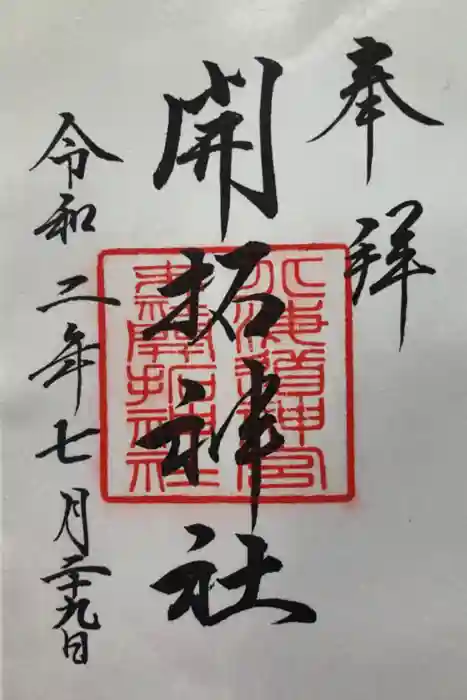 奉拝
開拓神社
北海道神宮
末社開拓神社
令和二年七月二十九日